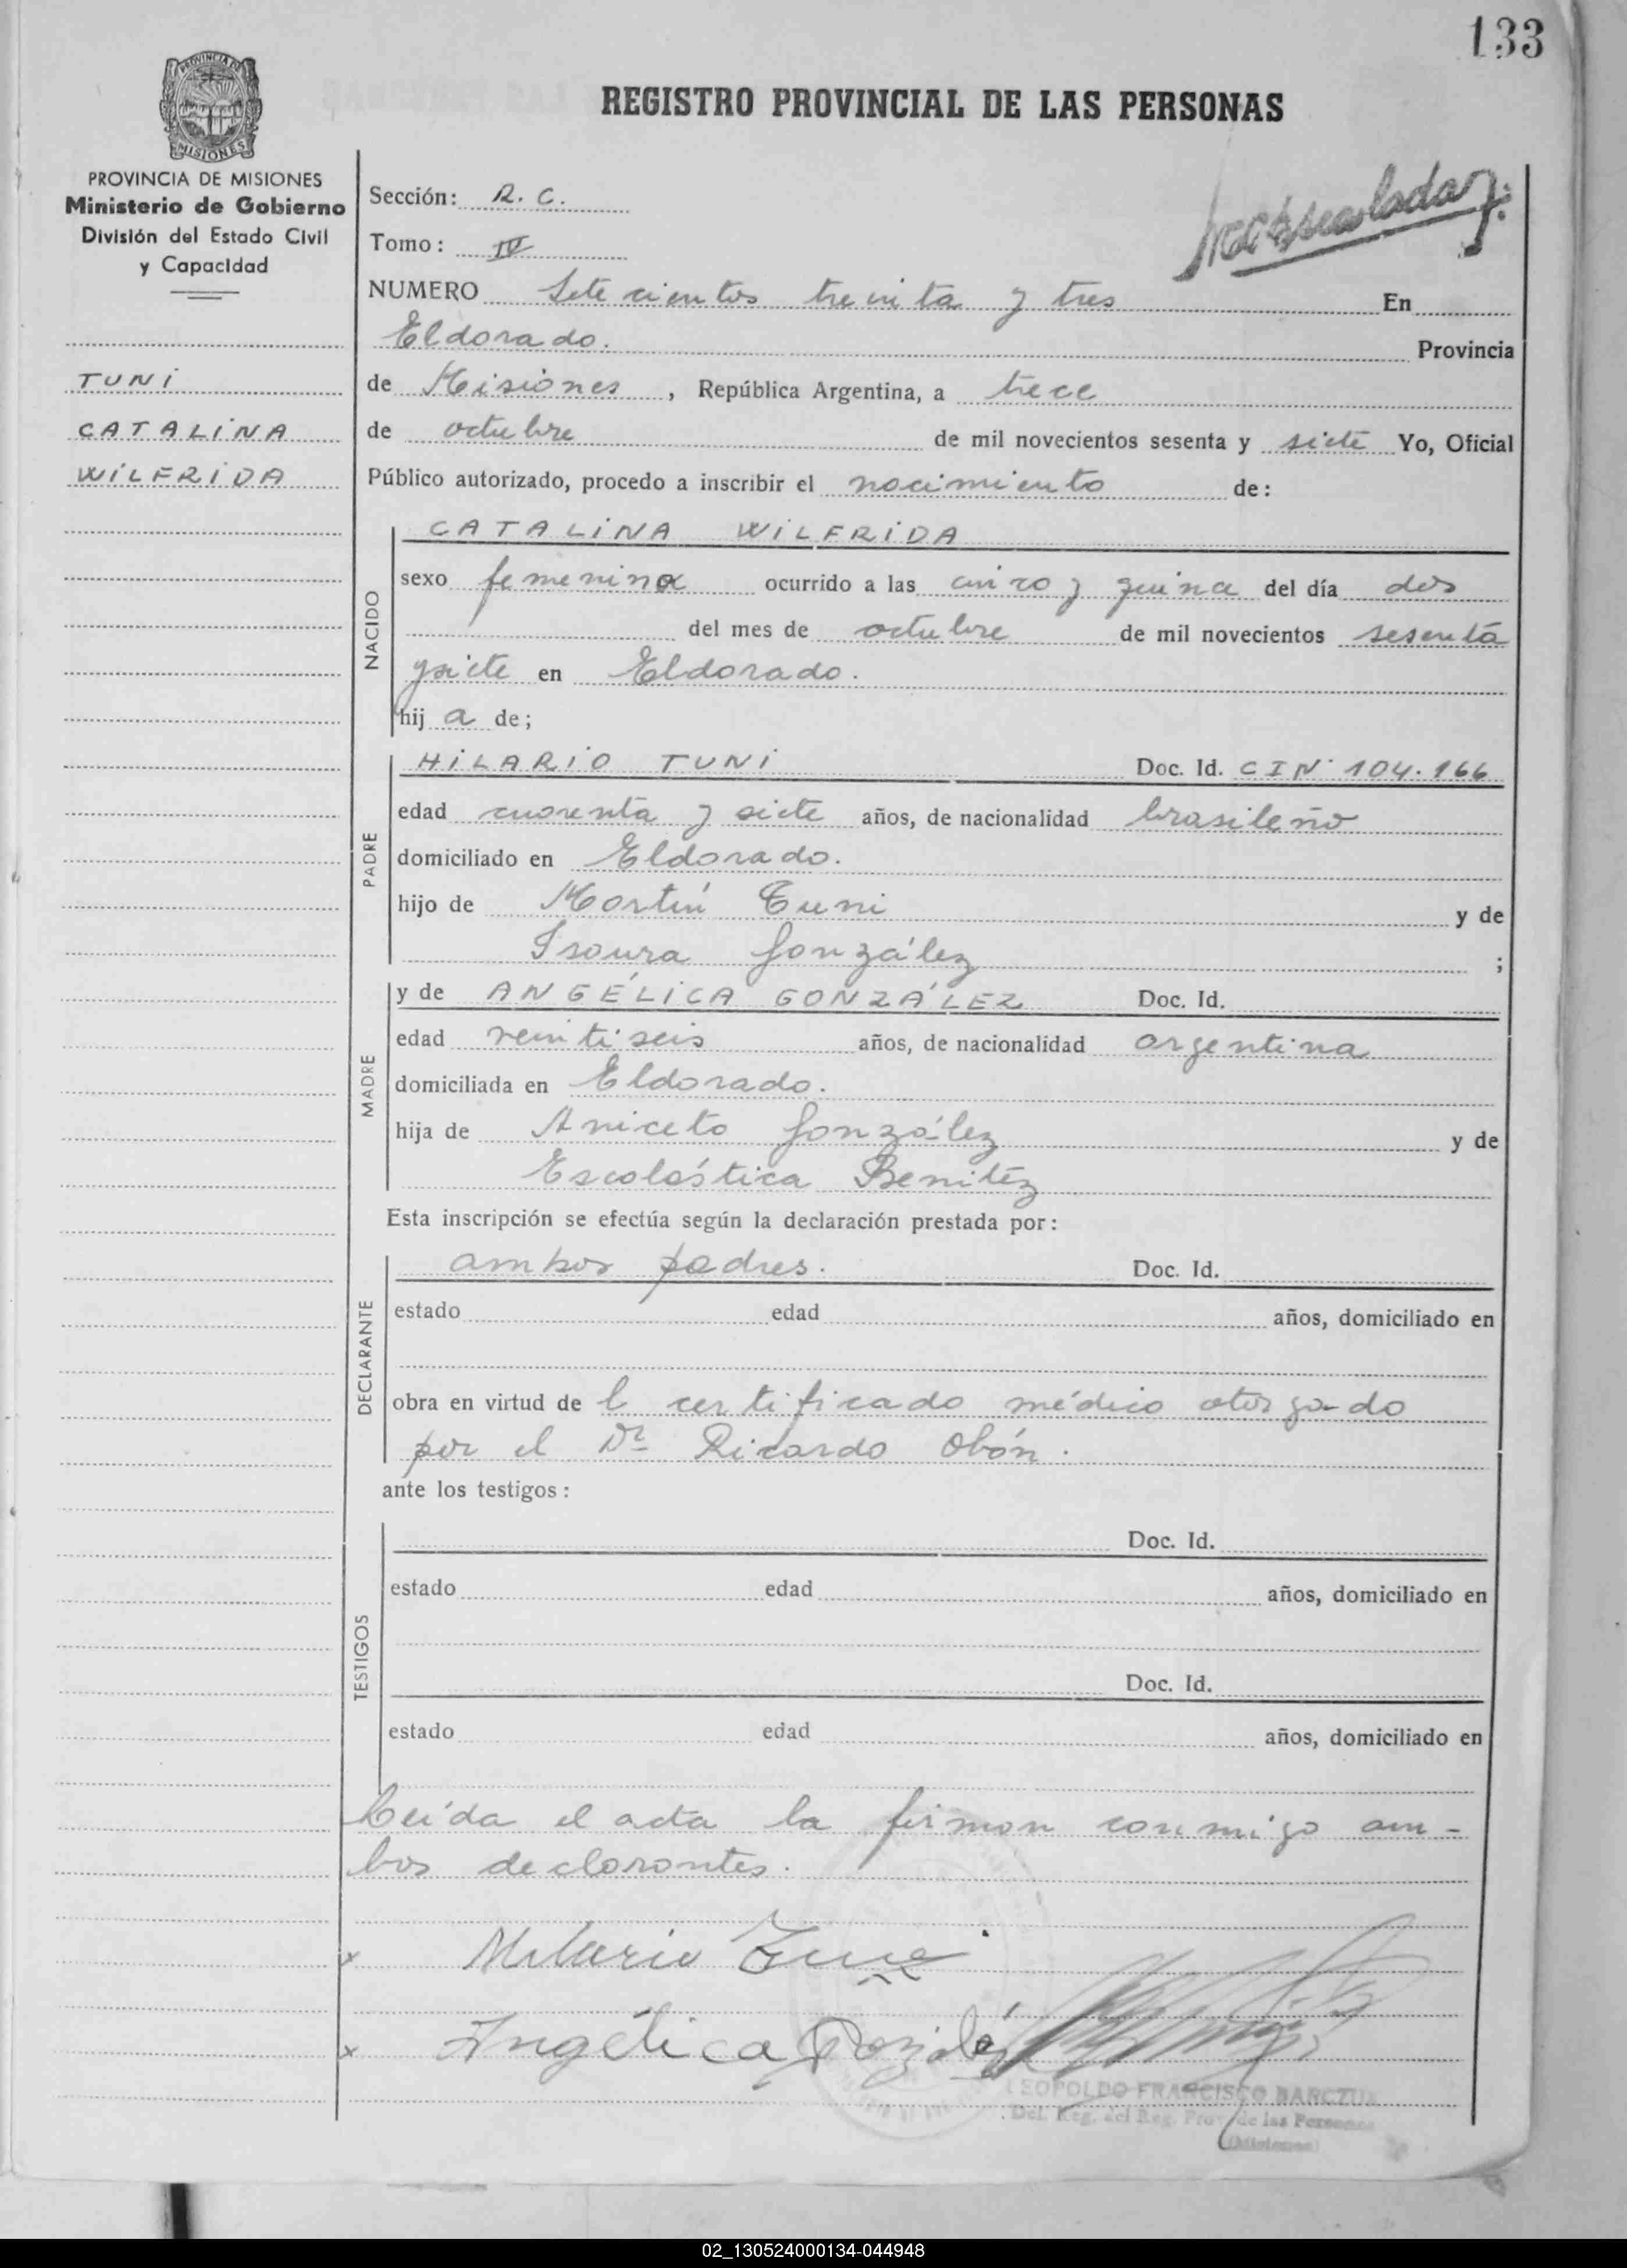 133
REGISTRO PROVINCIAL DE LAS PERSONAS
PROVINCIA DE MISIONES
MISIONES
PROVINCIA DE MISIONES
Ministerio de Gobierno
División del Estado Civil
y Capacidad
TUNI
CATALINA
WILFRIDA
Sección: R. C.
Tomo: IV
NUMERO Setecientos treinta y tres En
Eldorado. Provincia
de Misiones, República Argentina, a trece
de octubre de mil novecientos sesenta y siete Yo, Oficial
Público autorizado, procedo a inscribir el nacimiento de:
NACIDO
CATALINA WILFRIDA
sexo femenino ocurrido a las cinco y quince del día dos
del mes de octubre de mil novecientos sesenta
y siete en Eldorado.
hij a de;
PADRE
HILARIO TUNI Doc. Id. CIN° 104.166
edad cuarenta y siete años, de nacionalidad brasileño
domiciliado en Eldorado.
hijo de Martín Tuni y de
Isaura González ;
MADRE
y de ANGÉLICA GONZÁLEZ Doc. Id.
edad veintiseis años, de nacionalidad argentina
domiciliada en Eldorado.
hija de Aniceto González y de
Escolástica Benitez
Esta inscripción se efectúa según la declaración prestada por:
DECLARANTE
ambos padres. Doc. Id.
estado edad años, domiciliado en
obra en virtud de l certificado médico otorgado
por el Dr Ricardo Obón.
ante los testigos:
TESTIGOS
Doc. Id.
estado edad años, domiciliado en
Doc. Id.
estado edad años, domiciliado en
Leída el acta la firman conmigo am-
bos declarantes.
x Hilario Tuni
x Angélica González
LEOPOLDO FRANCISCO
Del. Reg. del Reg. Prov. de las Personas
(Misiones)
02_130524000134-044948